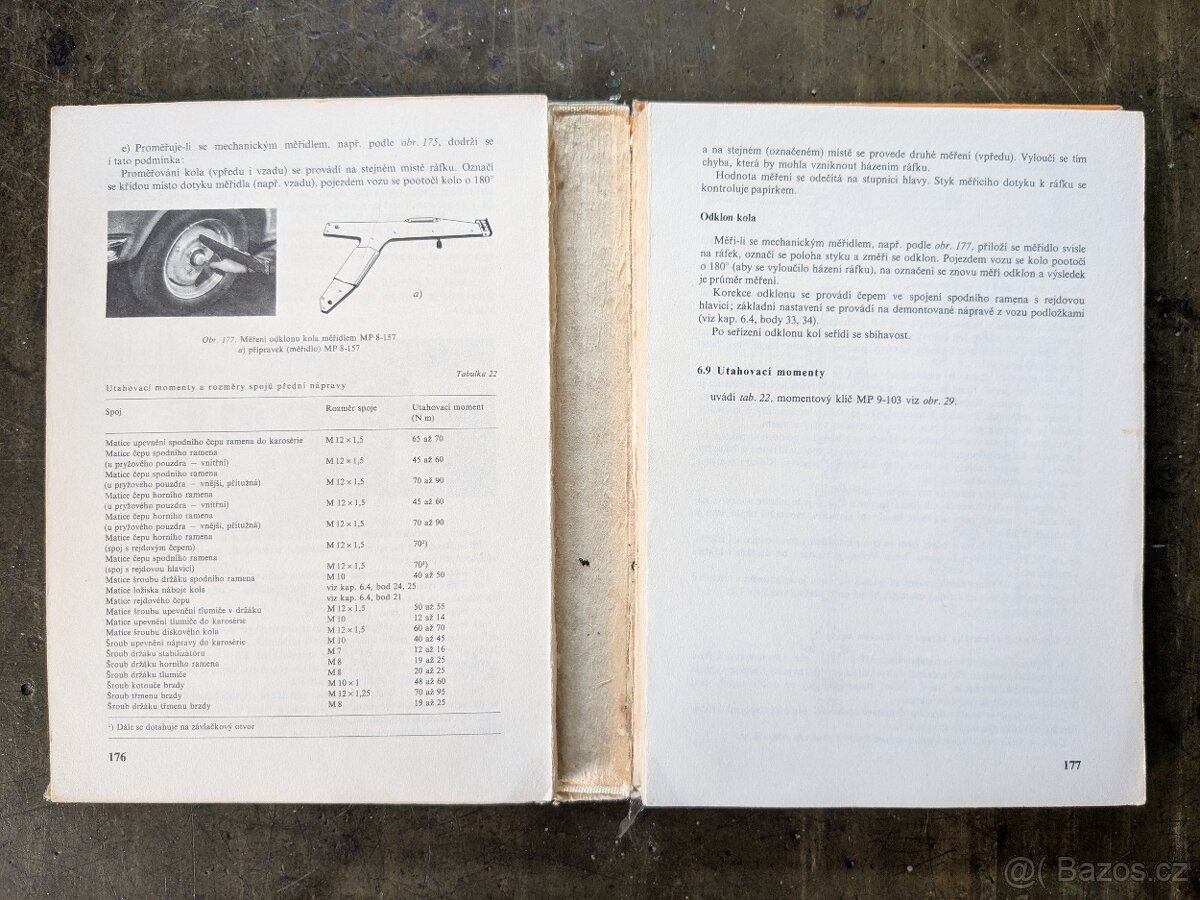 e) Proměřuje-li se mechanickým měřidlem, např. podle obr. 175, dodrží se
i tato podmínka:
Proměřování kola (vpředu i vzadu) se provádí na stejném místě ráfku. Označí
se křídou místo dotyku měřidla (např. vzadu), pojezdem vozu se pootočí kolo o 180°
a)
Obr. 177. Měření odklonu kola měřidlem MP 8-157
a) přípravek (měřidlo) MP 8-157
Tabulka 22
Utahovací momenty a rozměry spojů přední nápravy
Spoj Rozměr spoje Utahovací moment
(N m)
Matice upevnění spodního čepu ramena do karosérie M 12 × 1,5 65 až 70
Matice čepu spodního ramena
(u pryžového pouzdra — vnitřní) M 12 × 1,5 45 až 60
Matice čepu spodního ramena
(u pryžového pouzdra — vnější, přítužná) M 12 × 1,5 70 až 90
Matice čepu horního ramena
(u pryžového pouzdra — vnitřní) M 12 × 1,5 45 až 60
Matice čepu horního ramena
(u pryžového pouzdra — vnější, přítužná) M 12 × 1,5 70 až 90
Matice čepu horního ramena
(spoj s rejdovým čepem) M 12 × 1,5 70²)
Matice čepu spodního ramena
(spoj s rejdovou hlavicí) M 12 × 1,5 70²)
Matice šroubu držáku spodního ramena M 10 40 až 50
Matice ložiska náboje kola viz kap. 6.4, bod 24, 25
Matice rejdového čepu viz kap. 6.4, bod 21
Matice šroubu upevnění tlumiče v držáku M 12 × 1,5 50 až 55
Matice upevnění tlumiče do karosérie M 10 12 až 14
Matice šroubu diskového kola M 12 × 1,5 60 až 70
Šroub upevnění nápravy do karosérie M 10 40 až 45
Šroub držáku stabilizátoru M 7 12 až 16
Šroub držáku horního ramena M 8 19 až 25
Šroub držáku tlumiče M 8 20 až 25
Šroub kotouče brzdy M 10 × 1 48 až 60
Šroub třmenu brzdy M 12 × 1,25 70 až 95
Šroub držáku třmenu brzdy M 8 19 až 25
²) Dále se dotahuje na závlačkový otvor
176
a na stejném (označeném) místě se provede druhé měření (vpředu). Vyloučí se tím
chyba, která by mohla vzniknout házením ráfku.
Hodnota měření se odečítá na stupnici hlavy. Styk měřicího dotyku k ráfku se
kontroluje papírkem.
Odklon kola
Měří-li se mechanickým měřidlem, např. podle obr. 177, přiloží se měřidlo svisle
na ráfek, označí se poloha styku a změří se odklon. Pojezdem vozu se kolo pootočí
o 180° (aby se vyloučilo házení ráfku), na označení se znovu měří odklon a výsledek
je průměr měření.
Korekce odklonu se provádí čepem ve spojení spodního ramena s rejdovou
hlavicí; základní nastavení se provádí na demontované nápravě z vozu podložkami
(viz kap. 6.4, body 33, 34).
Po seřízení odklonu kol seřídí se sbíhavost.
6.9 Utahovací momenty
uvádí tab. 22, momentový klíč MP 9-103 viz obr. 29.
177
@( Bazos.cz